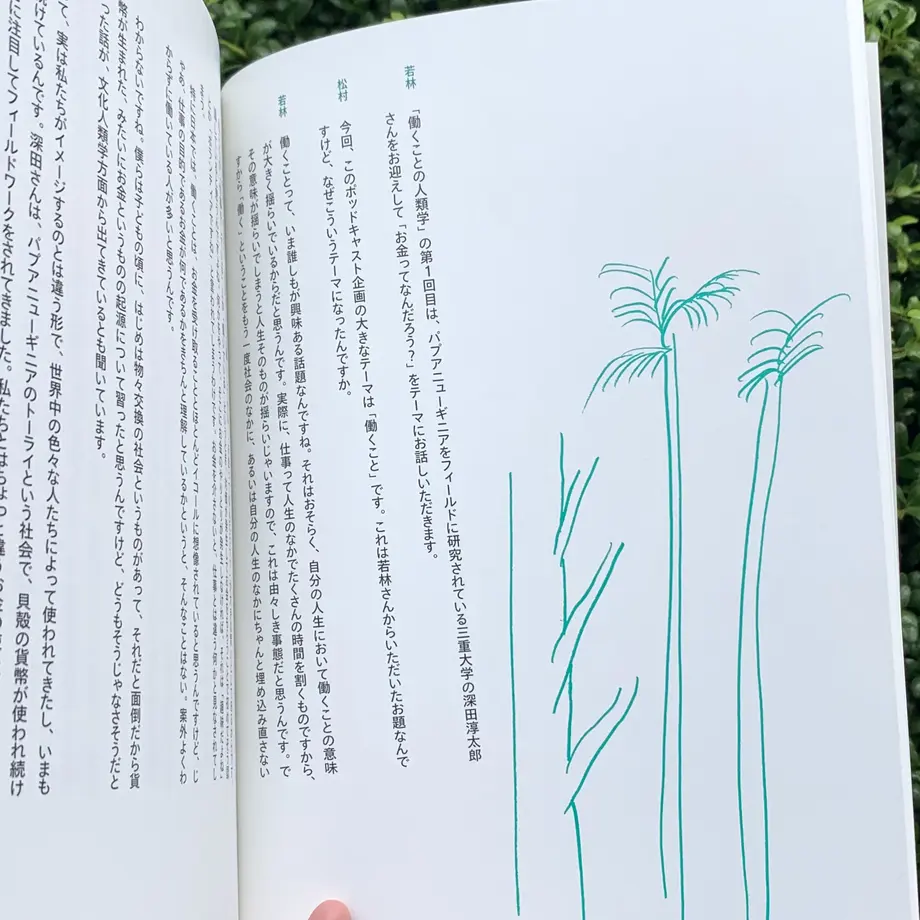 若林
「働くことの人類学」の第1回目は、パプアニューギニアをフィールドに研究されている三重大学の深田淳太郎
さんをお迎えして「お金ってなんだろう?」をテーマにお話しいただきます。
松村
今回、このポッドキャスト企画の大きなテーマは「働くこと」です。これは若林さんからいただいたお題なんで
すけど、なぜこういうテーマになったんですか。
若林
働くことって、いま誰しもが興味ある話題なんですね。それはおそらく、自分の人生において働くことの意味
が大きく揺らいでいるからだと思うんです。実際に、仕事って人生のなかでたくさんの時間を割くものですから、
その意味が揺らいでしまうと人生そのものが揺らいじゃいますので、これは由々しき事態だと思うんです。で
すから「働く」ということをもう一度社会のなかに、あるいは自分の人生のなかにちゃんと埋め込み直さない
特に日本人では、働くことは、お金を受け取ることとほとんどイコールに想像されていると思うんですけど、じ
ゃあ、仕事の目的であるお金が何であるかをきちんと理解しているかというと、そんなことはない。案外よくわ
からずに働いている人が多いと思うんです。
わからないですね。僕らは子どもの頃に、はじめは物々交換の社会というものがあって、それだと面倒だから貨
幣が生まれた、みたいにお金というものの起源について習ったと思うんですけど、どうもそうじゃなさそうだと
った話が、文化人類学方面から出てきているとも聞いています。
て、実は私たちがイメージするのとは違う形で、世界中の色々な人たちによって使われてきたし、いまも
けているんです。深田さんは、パプアニューギニアのトーライという社会で、貝殻の貨幣が使われ続け
に注目してフィールドワークをされてきました。私たちとはちょっと違う